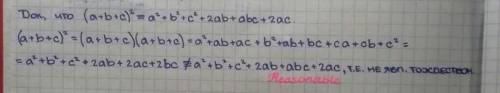 Док, что (a+b+c)² = a²+b²+c²+2ab+abc+2ac.
(a+b+c)² = (a+b+c)(a+b+c) = a²+ab+ac+b²+ab+bc+ca+cb+c² =
= a²+b²+c²+2ab+2ac+2bc ≠ a²+b²+c²+2ab+abc+2ac, т.е. не явл. тождеством.
Reasonable